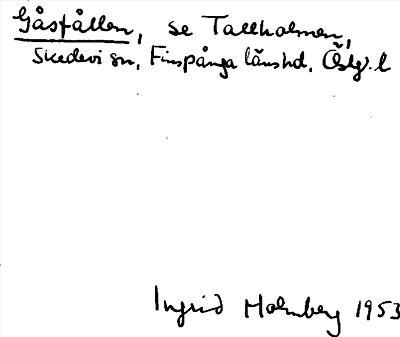 Gåsfållen, se Tallholmen,
Skedevi sn, Finspånga länshd, Östg. l
Ingrid Holmberg 1953